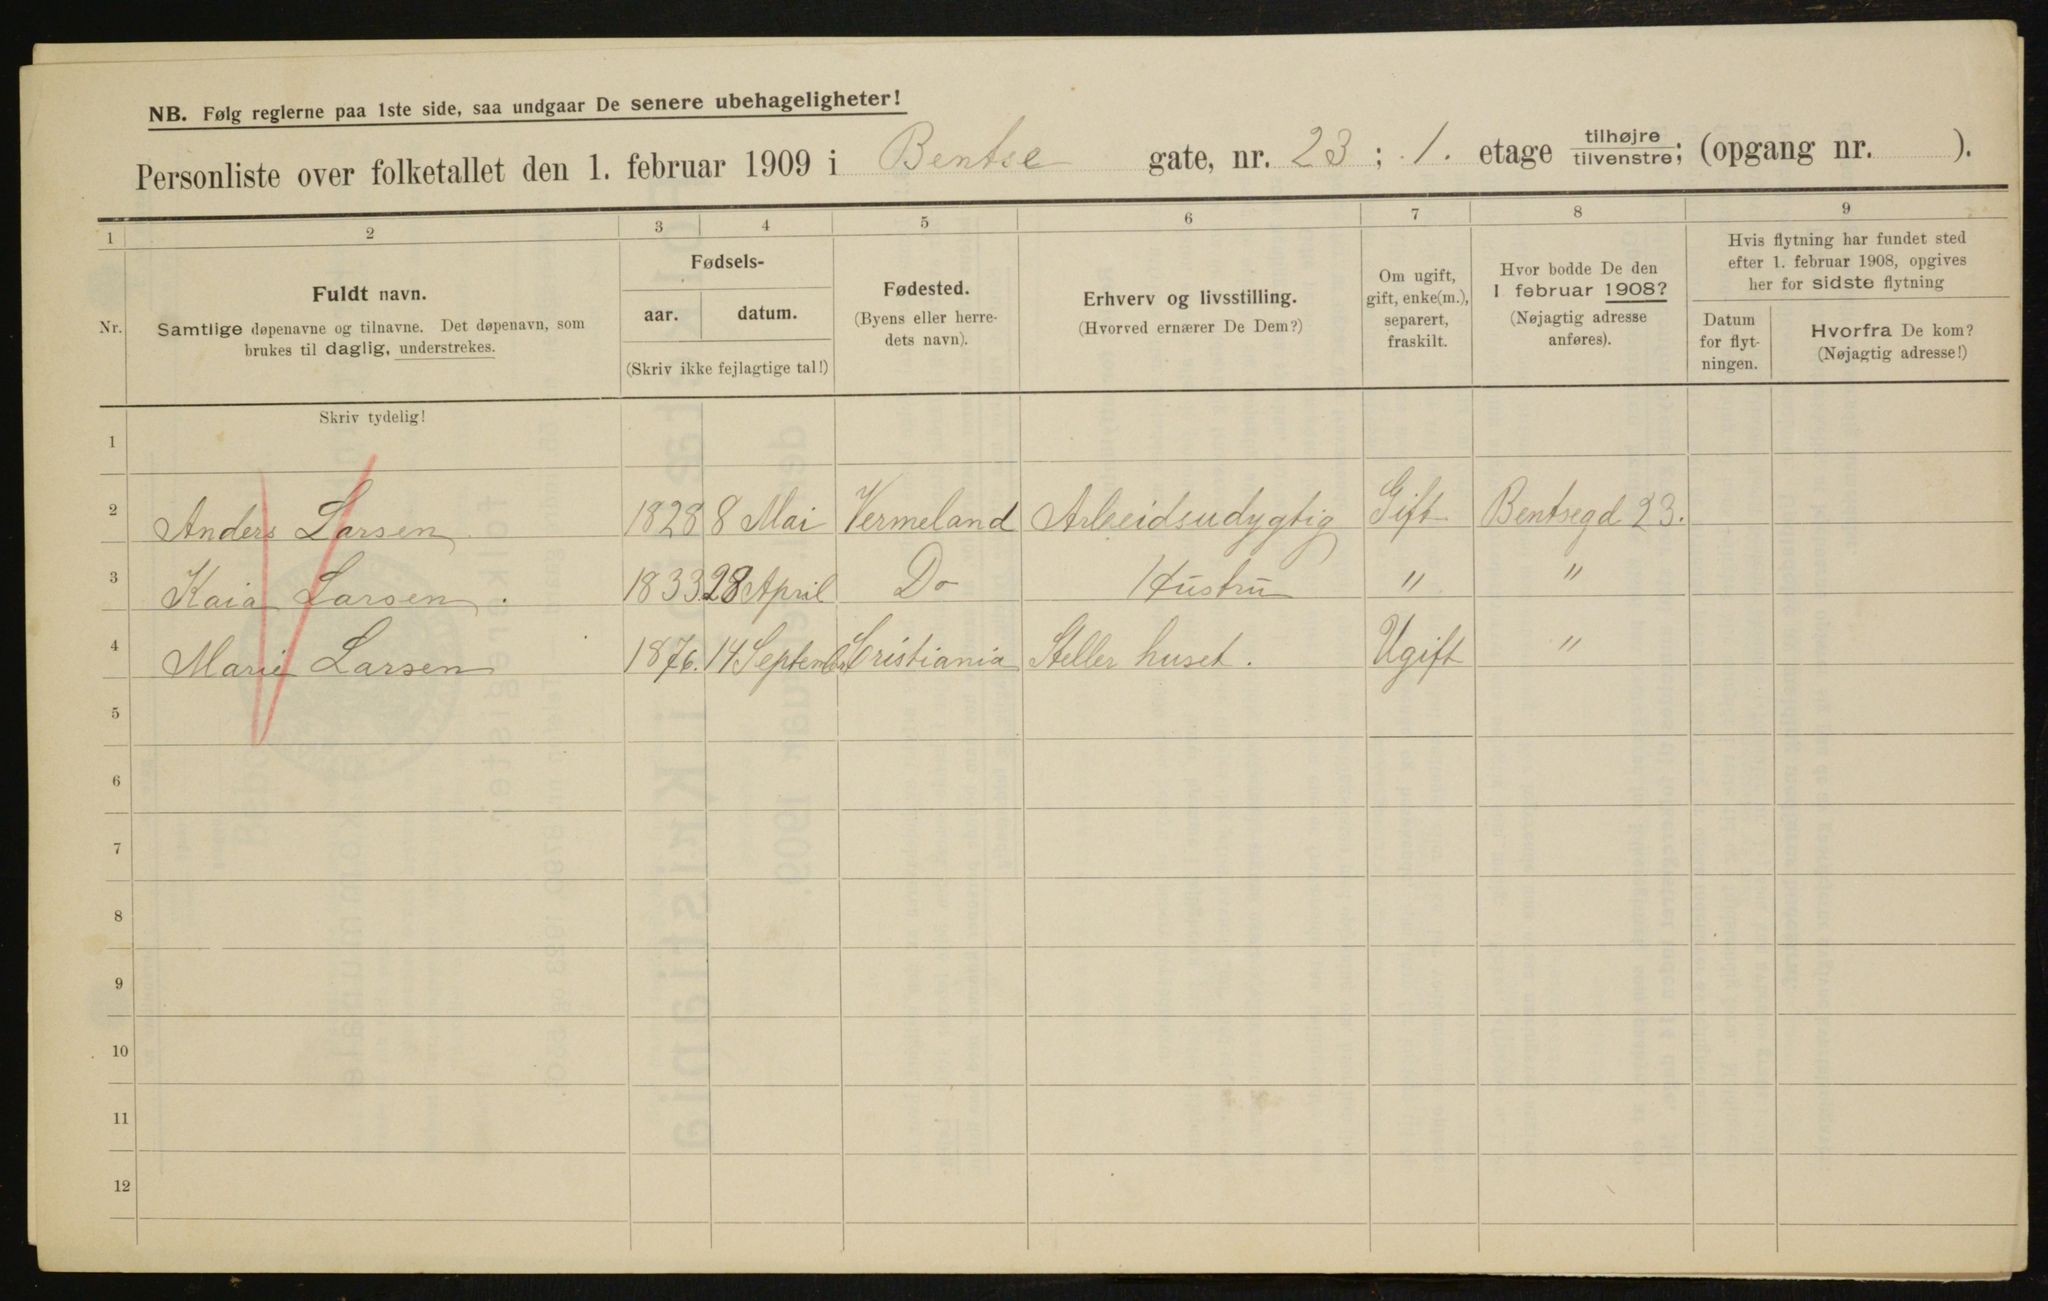 NB. Følg reglerne paa 1ste side, saa undgaar De senere ubehageligheter!
Personliste over folketallet den 1. februar 1909 i Bentse gate, nr. 23 ; 1. etage tilhøjre tilvenstre; (opgang nr. ).
1 2 3 4 5 6 7 8 9
Nr.
Fuldt navn.
Samtlige døpenavne og tilnavne. Det døpenavn, som
brukes til daglig, understrekes.
Fødsels-
aar. datum.
(Skriv ikke fejlagtige tal!)
Fødested.
(Byens eller herre-
dets navn).
Erhverv og livsstilling.
(Hvorved ernærer De Dem?)
Om ugift,
gift, enke(m.),
separert,
fraskilt.
Hvor bodde De den
1 februar 1908?
(Nøjagtig adresse
anføres).
Hvis flytning har fundet sted
efter 1. februar 1908, opgives
her for sidste flytning
Datum
for flyt-
ningen.
Hvorfra De kom?
(Nøjagtig adresse!)
Skriv tydelig!
1
2 Anders Larsen 1828 8 Mai Vermeland Arbeidsudygtig Gift Bentsegd 23.
3 Kaia Larsen. 1833. 28 April Do Hustru " "
4 Marie Larsen 1876. 14 September Kristiania Steller huset. Ugift "
5
6
7
8
9
10
11
12